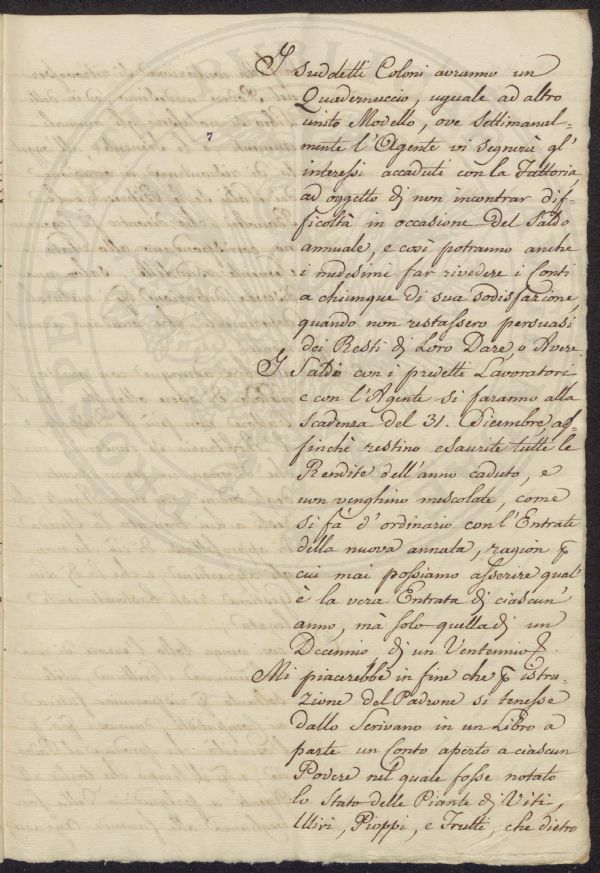 I suddetti Coloni avranno un
Quadernuccio, uguale ad altro
unito Modello, ove settimanal-
mente l'Agente vi segnerà gl'
interessi accaduti con la Fattoria,
ad oggetto di non incontrar dif-
ficoltà in occasione del Saldo
annuale, e così potranno anche
i medesimi far rivedere i Conti
a chiunque di sua sodisfazione,
quando non restassero persuasi
dei Resti di Loro Dare, o Avere.
I Saldi con i predetti Lavoratori
e con l'Agente si faranno alla
scadenza del 31. Dicembre, af-
finchè restino esaurite tutte le
Rendite dell'anno caduto, e
non venghino mescolate, come
si fà d'ordinario con l'Entrate
della nuova annata, ragion p
cui mai possiamo asserire qual'
è la vera Entrata di ciascun'
anno, mà solo quella di un
Decennio di un Ventennio
Mi piacerebbe in fine che p istru-
zione del Padrone si tenesse
dallo Scrivano in un Libro a
parte un Conto aperto a ciascun
Podere nel quale fosse notato
lo Stato delle Piante di Viti,
Ulivi, Pioppi, e Frutti, che dietro
7